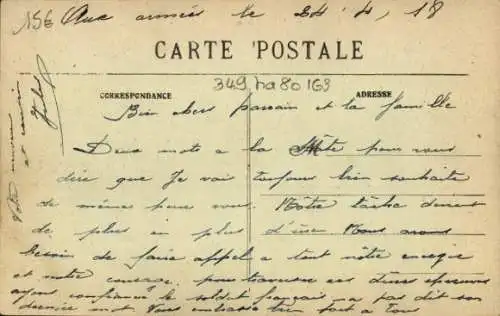 156 Aux armées le 24.4.18
CARTE POSTALE
349 na 80 163
CORRESPONDANCE
ADRESSE
Bien chers parrain et la famille
Deux mots a la hâte pour vous
dire que Je vais toujours bien souhaite
de même pour vous. Nôtre tâche devient
de plus en plus Nous avons
besoin de faire appel a tout nôtre energie
et notre courage pour traverser ces dures épreuves
ayons confiance le soldat français n'a pas dit son
dernier mot Vous embrasse bien fort a Tous
Votre neveu
et cousin
Jules